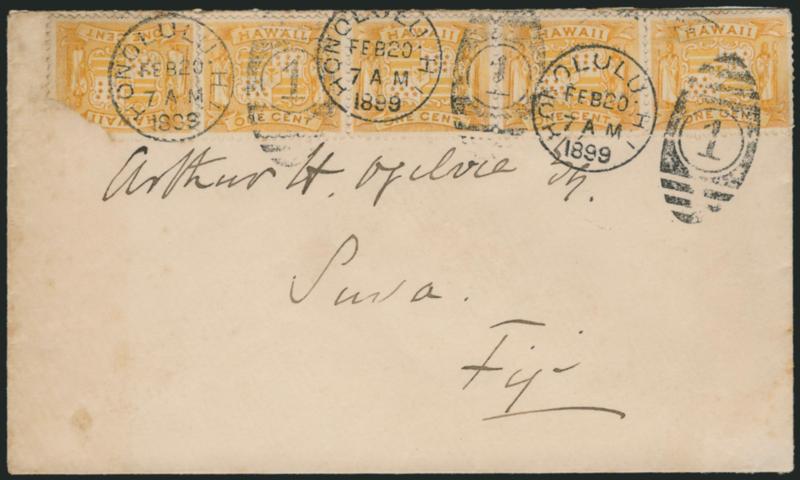 ONE CENT HAWAII
HAWAII ONE CENT
HAWAII ONE CENT
HAWAII ONE CENT
HAWAII ONE CENT
HONOLULU H.I. FEB 20 7 AM 1899
1
HONOLULU H.I. FEB 20 7 AM 1899
1
HONOLULU H.I. FEB 20 7 AM 1899
1
Arthur H. Ogilvie
Suva.
Fiji